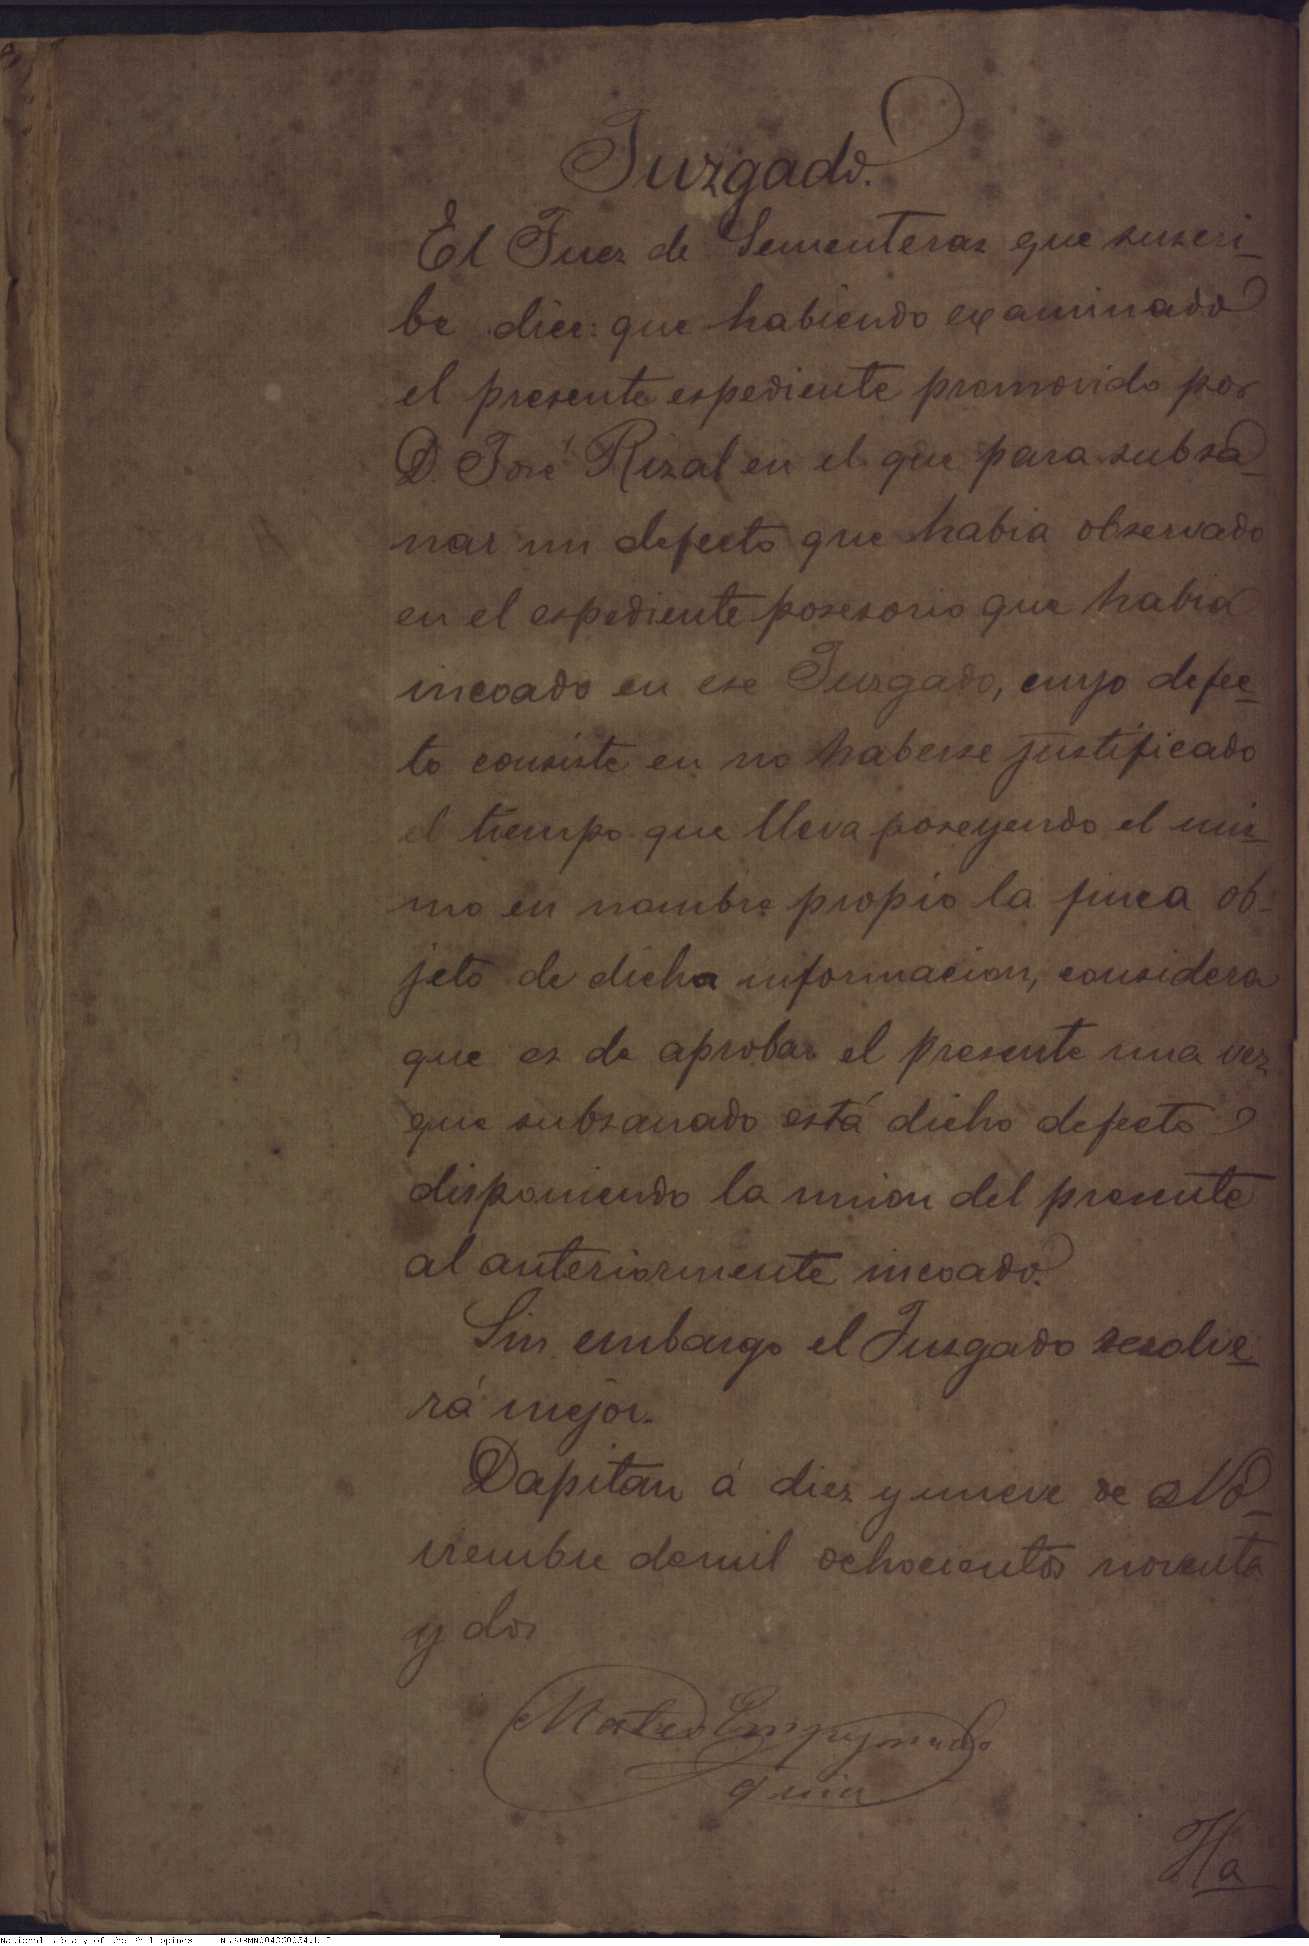 Juzgado.
El Juez de Sementeras que suscri-
be dice: que habiendo examinado
el presente espediente promovido por
D. José Rizal en el que para subsa-
nar un defecto que habia observado
en el espediente posesorio que habia
incoado en ese Juzgado, cuyo defec-
to consiste en no haberse justificado
el tiempo que lleva poseyendo el mis-
mo en nombre propio la finca ob-
jeto de dicha informacion, considera
que es de aprobar el presente una vez
que subsanado está dicho defecto
disponiendo la union del presente
al anteriormente incoado.
Sin embargo el Juzgado resolve-
rá mejor.
Dapitan á diez y nueve de No-
viembre de mil ochocientos noventa
y dos
Mateo
Ha
National Library of the Philippines